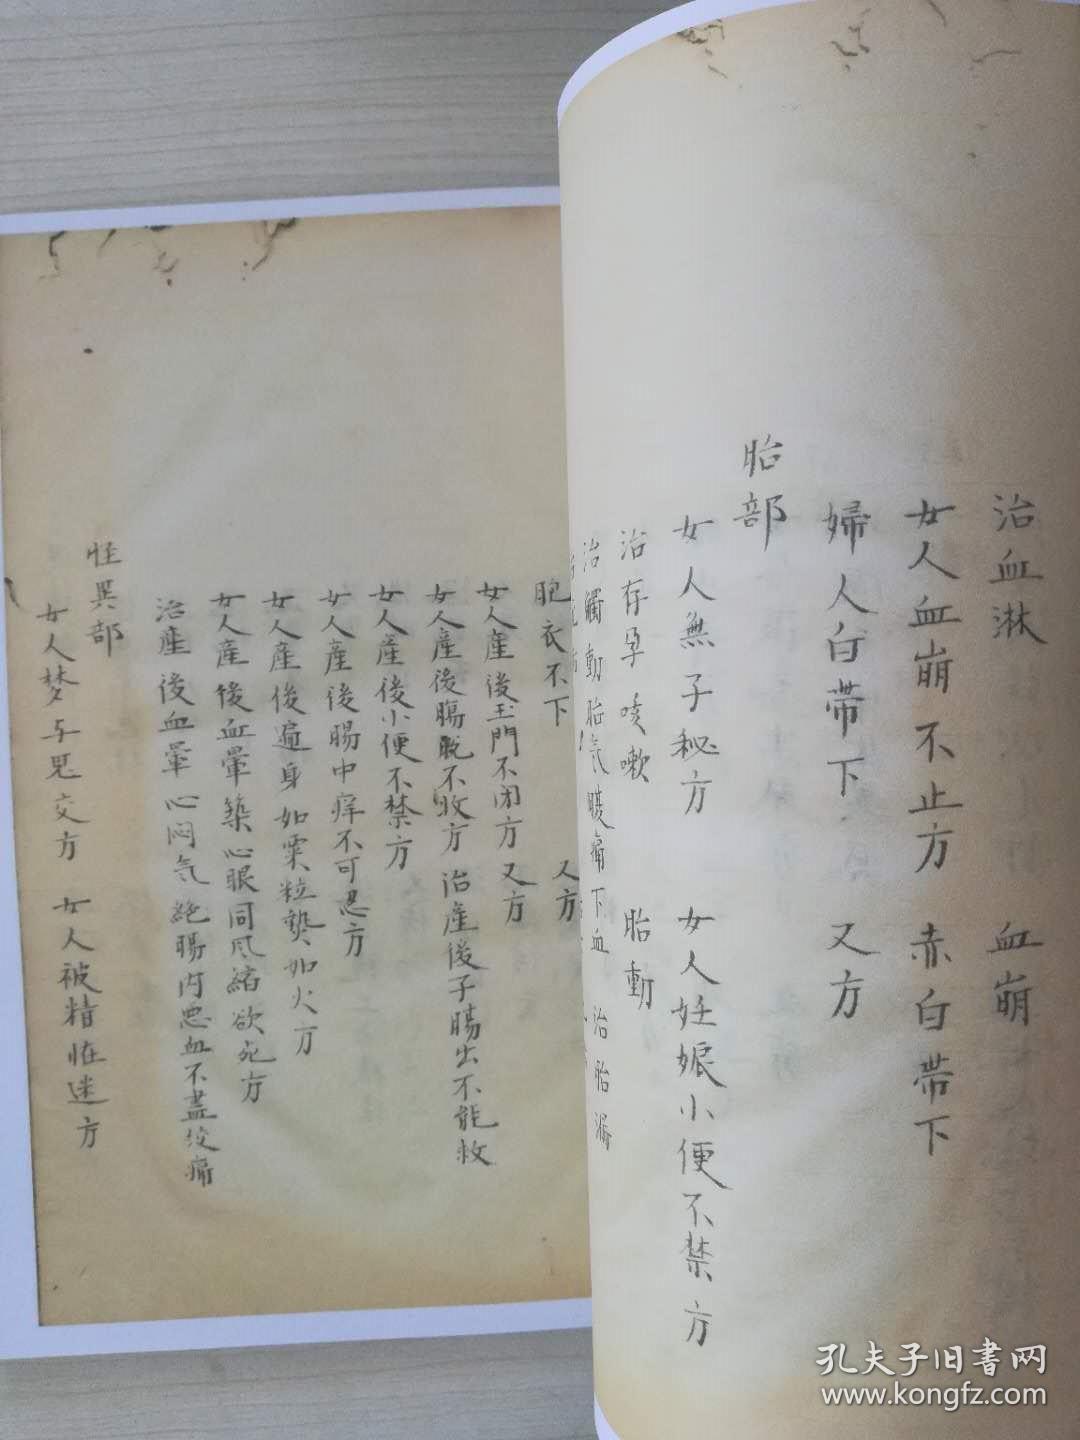 治血淋 血崩
女人血崩不止方 赤白帶下
婦人白帶下 又方
胎部
女人無子秘方 女人妊娠小便不禁方
治存孕咳嗽 胎動
治觸動胎气腰痛下血 治胎漏
胞衣不下 又方
女人產後玉門不闭方 又方
女人產後腸脫不收方 治產後子腸出不能救
女人產後小便不禁方
女人產後腸中痒不可忍方
女人產後遍身如粟粒熱如火方
女人產後血暈築心眼同风縮欲死方
治產後血暈心闷气絕腸内恶血不盡绞痛
怪異部
女人梦与鬼交方 女人被精怪迷方
孔夫子旧書网
www.kongfz.com